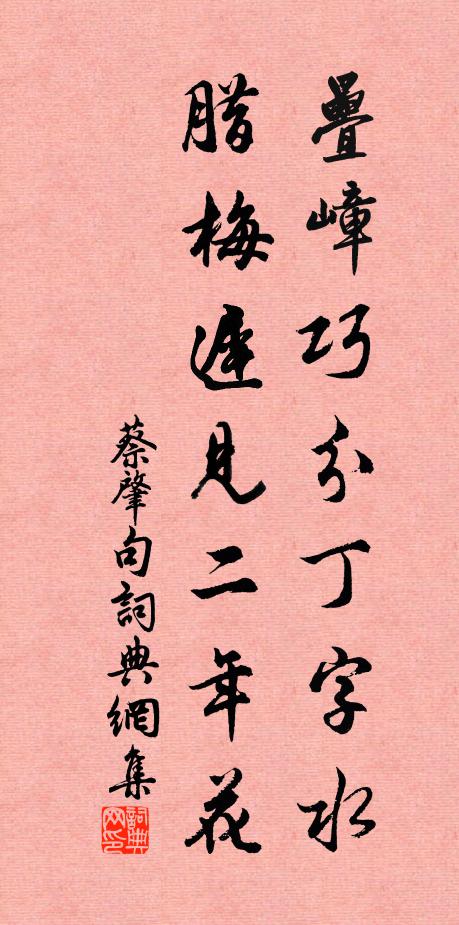 疊嶂巧分丁字水
腊梅遲見二年花
蔡肇句詞典網集
詞典网印